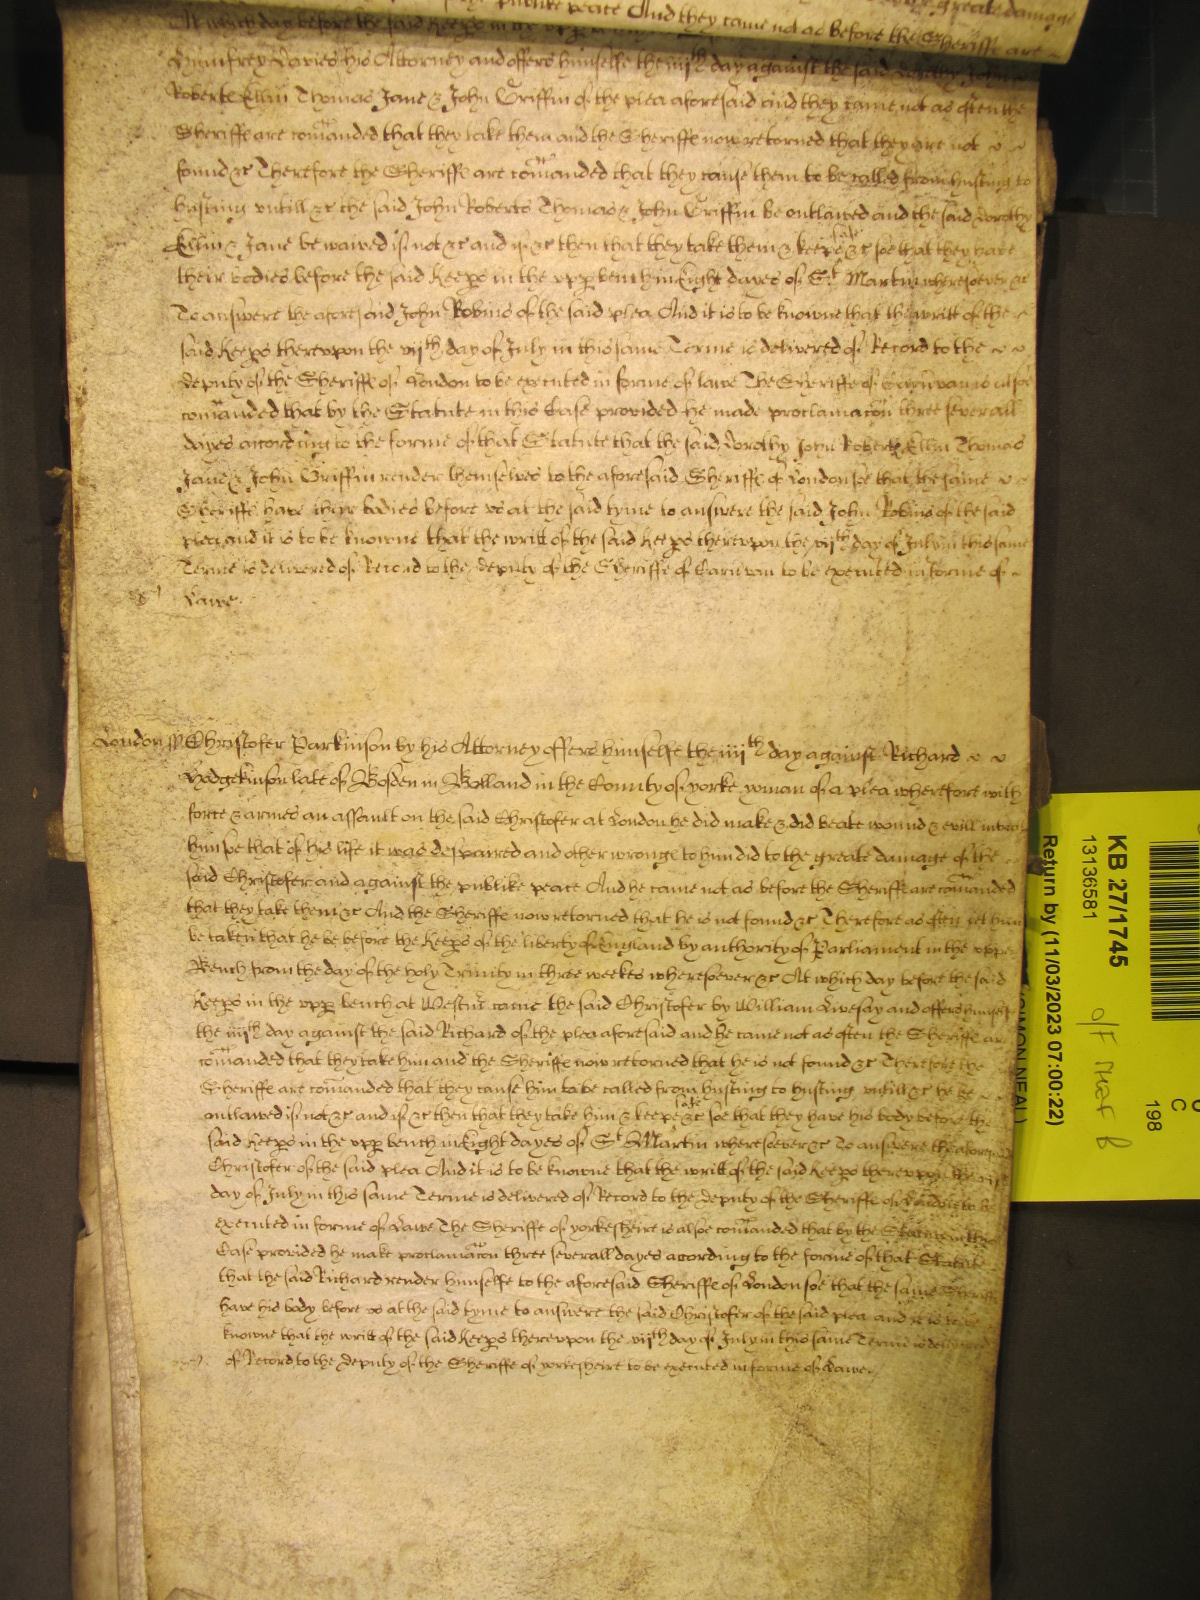 publike peace And they came not as before the Sheriffe are
greate damage
At which day before the said Keeps in the upp
Humfrey Davies his Attorney and offers himselfe the iiijth day against the said Dorothy John
Roberts Ellin Thomas Jane & John Griffin of the plea aforesaid and they came not as often the
Sheriffe are comanded that they take them and the Sheriffe now retorned that they are not
found &c Therefore the Sheriffe are comanded that they cause them to be called from husting to
husting untill &c the said John Roberts Thomas & John Griffin be outlawed and the said Dorothy
Ellin & Jane be waived if not &c and if &c then that they take them & keepe safe &c soe that they have
their bodies before the said Keeps in the upp bench in Eight dayes of St Martin wheresoever &c
To answere the aforesaid John Robins of the said plea And it is to be knowne that the writt of the
said Keeps thereupon the viijth day of July in this same Terme is delivered of Record to the
deputy of the Sheriffe of London to be executed in forme of lawe The Sheriffe of Carnvan is alsoe
comanded that by the Statute in this Case provided he made proclamacon three severall
dayes according to the forme of that Statute that the said Dorothy John Roberts Ellin Thomas
Jane & John Griffin render themselves to the aforesaid Sheriffe of London soe that the same
Sheriffe have their bodies before us at the said tyme to answere the said John Robins of the said
plea and it is to be knowne that the writt of the said Keeps thereupon the viijth day of July in this same
Terme is delivered of Record to the deputy of the Sheriffe of Carnvan to be executed in forme of
Lawe.
London ss Christofer Parkinson by his Attorney offers himselfe the iiijth day against Richard
Hodgekinson late of Bosden in Bolland in the County of yorke yoman of a plea wherefore with
force & armes an assault on the said Christofer at London he did make & did beate wound & evill intreate
him soe that of his life it was despaired and other wrongs to him did to the great damage of the
said Christofer and against the publike peace And he came not as before the Sheriffe are comanded
that they take them &c And the Sheriffe now retorned that he is not found &c Therefore as often yet him
be taken that he be before the Keeps of the liberty of England by authority of Parliament in the upper
Bench from the day of the holy Trinity in three weekes wheresoever &c At which day before the said
Keeps in the upp bench at Westmr came the said Christofer by William Livesay and offers himself
the iiijth day against the said Richard of the plea aforesaid and he came not as often the Sheriffe are
comanded that they take him and the Sheriffe now retorned that he is not found &c Therefore the
Sheriffe are comanded that they cause him to be called from husting to husting untill &c he be
outlawed if not &c and if &c then that they take him & keepe safe &c soe that they have his body before the
said Keeps in the upp bench in Eight dayes of St Martin wheresoever &c To answere the aforesaid
Christofer of the said plea And it is to be knowne that the writt of the said Keeps thereupon the viijth
day of July in this same Terme is delivered of Record to the deputy of the Sheriffe of London to be
executed in forme of Lawe The Sheriffe of yorkesheire is alsoe comanded that by the Statute in this
Case provided he make proclamacon three severall dayes according to the forme of that Statute
that the said Richard render himselfe to the aforesaid Sheriffe of London soe that the same Sheriffe
have his body before us at the said tyme to answere the said Christofer of the said plea and it is to be
knowne that the writt of the said Keeps thereupon the viijth day of July in this same Terme is delivered
of Record to the deputy of the Sheriffe of yorkesheire to be executed in forme of Lawe.
KB 27/1745
13136581
Return by (11/03/2023 07:00:22)
(SIMON NEAL)
C
198